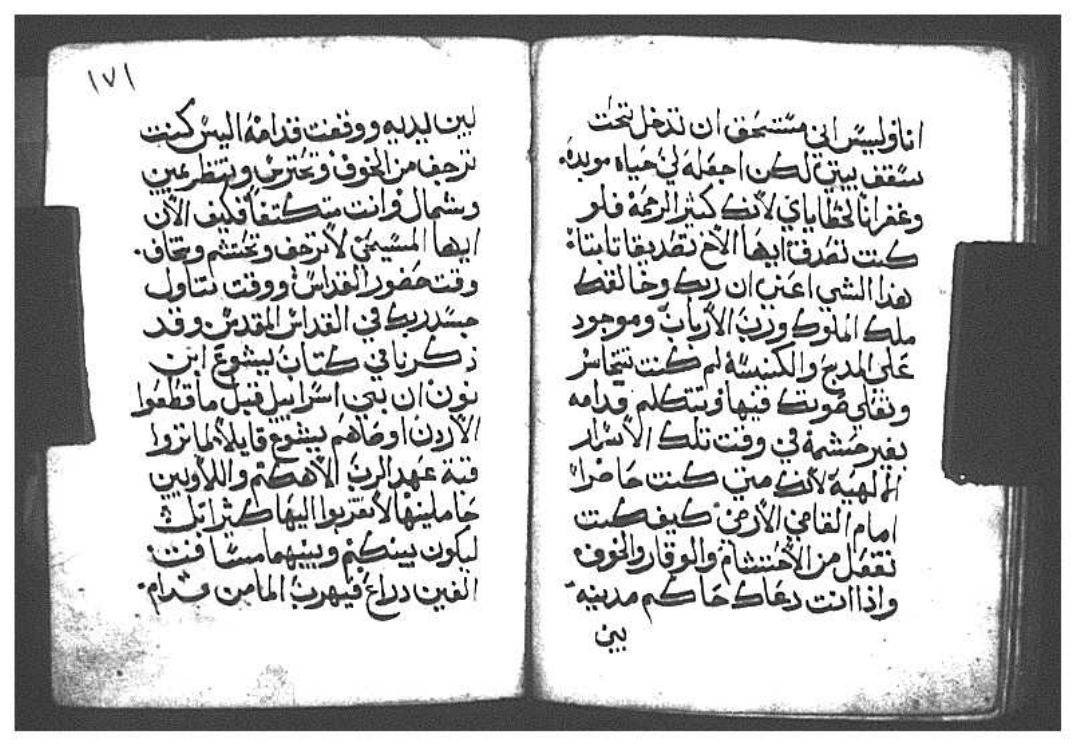 انا وليس اني مستحق ان تدخل تحت
سقف بيتي لكن اجعله لي حياه موبده.
وغفرانا لخطاياي لانك كثير الرحمة فلو
كنت تصدق ايها الاخ تصديقا تابتاً
هذا الشي اعني ان ربك وخالقك
ملك الملوك ورب الارباب وموجود
على المدبح والكنسية لم كنت تتجاسر
وتعلي صوتك فيها وتتكلم قدامه
بغير حشمة في وقت تلك الاسرار
الالهية لانك متي كنت حاضراً
امام القاضي الارضي كيف كنت
تفعل من الاحتشام والوقار والخوف
واذا انت دعاك حاكم مدينه
بين
١٧١
لبين يديه ووقفت قدامه اليس كنت
ترجف من الخوف وتحترس وتنتظر عين
وشمال وانت متكتفاً فكيف الان
ايها المسيحي لا ترجف وتحتشم وتخاف.
وقت حضور القداس ووقت تتاول
جسد ربك في القداس المقدس وقد
ذكر باقي كتاب يشوع ابن
نون ان بني اسراييل قبل ما قطعوا
الاردن اوصاهم يشوع قايلاً لما تروا
قبة عهد الرب الاهكم واللاويين
حاملينها لا تقتربوا اليها كثرا تك
ليكون بينكم وبينهما مسافت
الفين دراع فيهرب الما من قدام.